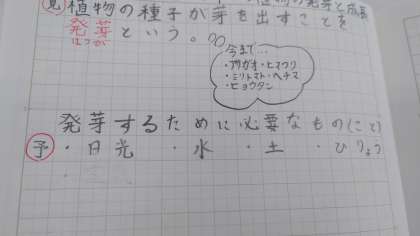 見 植物の発芽と成長
植物の種子が芽を出すことを
発芽という。
はつが
今まで…
・アサガオ・ヒマワリ
・ミリトマト・ヘチマ
・ヒョウタン
発芽するために必要なもの(こと)
予 ・日光 ・水 ・土 ・ひりょう